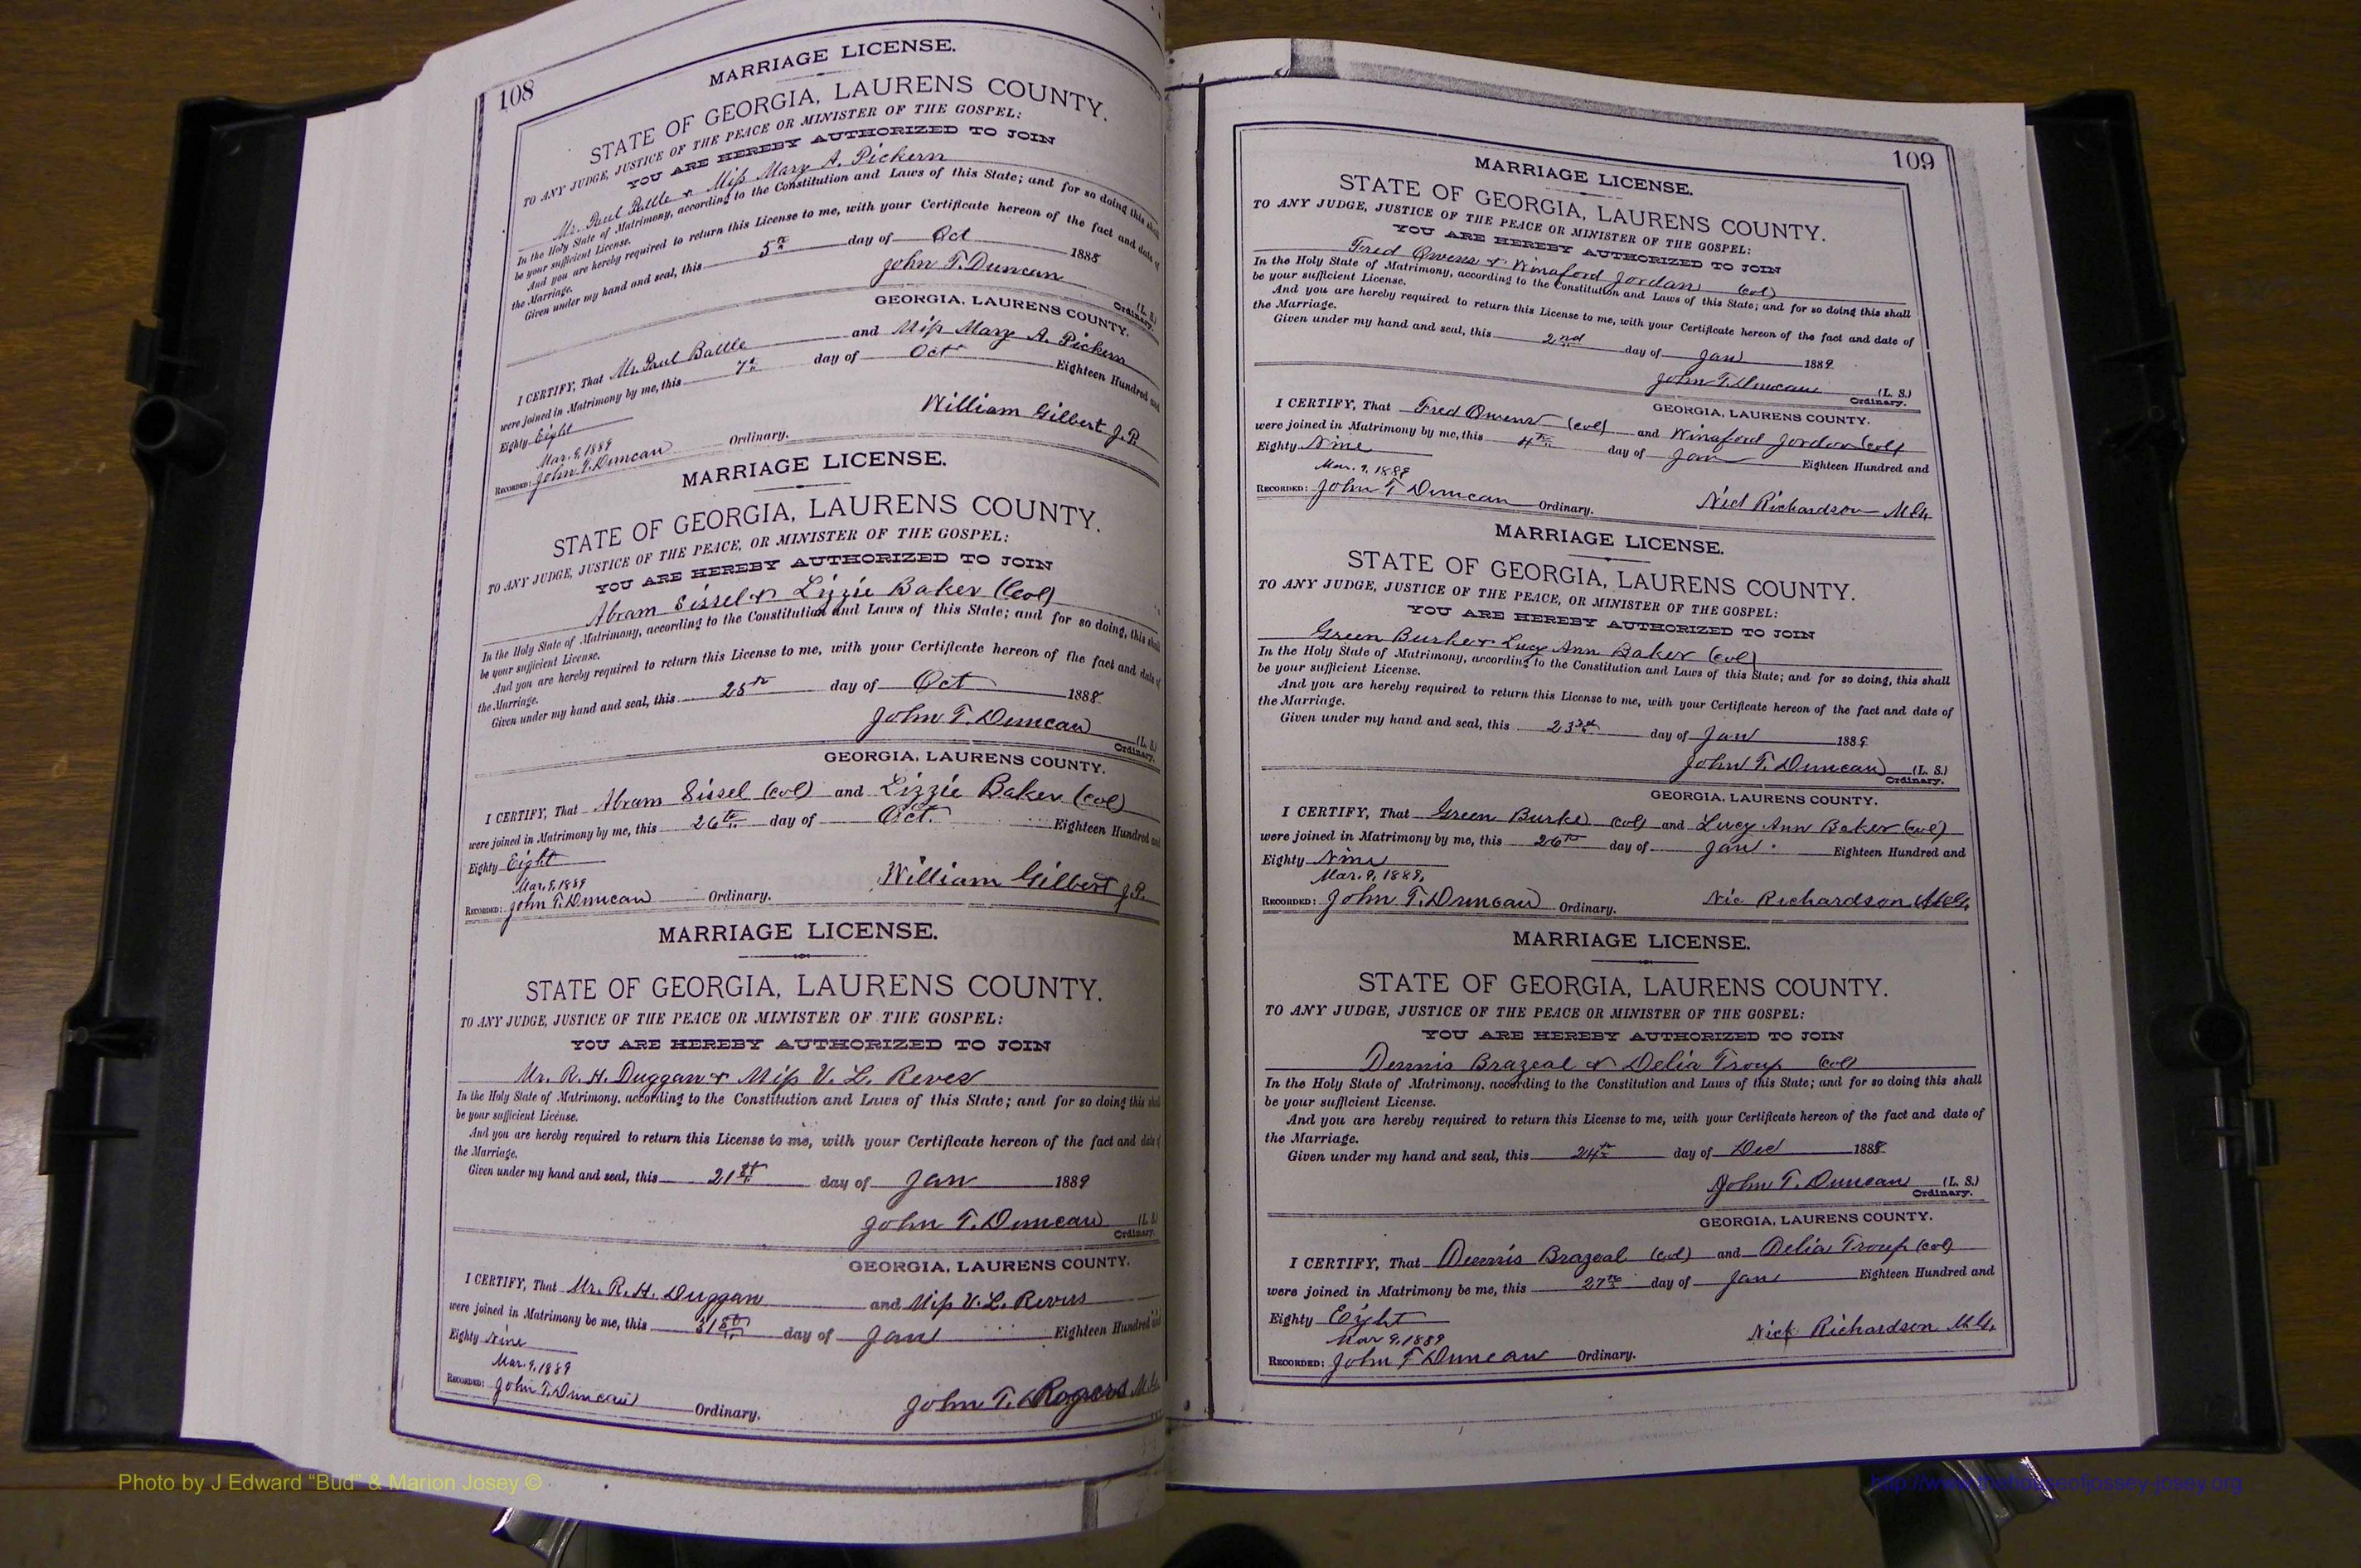 108
MARRIAGE LICENSE.
STATE OF GEORGIA, LAURENS COUNTY.
TO ANY JUDGE, JUSTICE OF THE PEACE OR MINISTER OF THE GOSPEL:
YOU ARE HEREBY AUTHORIZED TO JOIN
Mr. Paul Battle & Miss Mary A. Pickern
In the Holy State of Matrimony, according to the Constitution and Laws of this State; and for so doing this shall
be your sufficient License.
And you are hereby required to return this License to me, with your Certificate hereon of the fact and date of
the Marriage.
Given under my hand and seal, this 5th day of Oct 1888
John T. Duncan (L. S.)
Ordinary.
GEORGIA, LAURENS COUNTY.
I CERTIFY, That Mr. Paul Battle and Miss Mary A. Pickern
were joined in Matrimony by me, this 7th day of Oct Eighteen Hundred and
Eighty Eight
Mar. 9, 1889
William Gilbert J.P.
RECORDED: John T. Duncan Ordinary.
MARRIAGE LICENSE.
STATE OF GEORGIA, LAURENS COUNTY.
TO ANY JUDGE, JUSTICE OF THE PEACE, OR MINISTER OF THE GOSPEL:
YOU ARE HEREBY AUTHORIZED TO JOIN
Abram Sissel & Lizzie Baker (Col)
In the Holy State of Matrimony, according to the Constitution and Laws of this State; and for so doing, this shall
be your sufficient License.
And you are hereby required to return this License to me, with your Certificate hereon of the fact and date of
the Marriage.
Given under my hand and seal, this 25th day of Oct 1888
John T. Duncan (L. S.)
Ordinary.
GEORGIA, LAURENS COUNTY.
I CERTIFY, That Abram Sissel (Col) and Lizzie Baker (Col)
were joined in Matrimony by me, this 26th day of Oct. Eighteen Hundred and
Eighty Eight
Mar. 9, 1889
William Gilbert J.P.
RECORDED: John T. Duncan Ordinary.
MARRIAGE LICENSE.
STATE OF GEORGIA, LAURENS COUNTY.
TO ANY JUDGE, JUSTICE OF THE PEACE OR MINISTER OF THE GOSPEL:
YOU ARE HEREBY AUTHORIZED TO JOIN
Mr. R. H. Duggan & Miss V. L. Reves
In the Holy State of Matrimony, according to the Constitution and Laws of this State; and for so doing this shall
be your sufficient License.
And you are hereby required to return this License to me, with your Certificate hereon of the fact and date of
the Marriage.
Given under my hand and seal, this 21st day of Jan 1889
John T. Duncan (L. S.)
Ordinary.
GEORGIA, LAURENS COUNTY.
I CERTIFY, That Mr. R. H. Duggan and Miss V. L. Reves
were joined in Matrimony be me, this 31st day of Jan Eighteen Hundred and
Eighty Nine
Mar. 9, 1889
RECORDED: John T. Duncan Ordinary.
John T. Rogers M.G.
109
MARRIAGE LICENSE.
STATE OF GEORGIA, LAURENS COUNTY.
TO ANY JUDGE, JUSTICE OF THE PEACE OR MINISTER OF THE GOSPEL:
YOU ARE HEREBY AUTHORIZED TO JOIN
Fred Owens & Winaford Jordan (Col)
In the Holy State of Matrimony, according to the Constitution and Laws of this State; and for so doing this shall
be your sufficient License.
And you are hereby required to return this License to me, with your Certificate hereon of the fact and date of
the Marriage.
Given under my hand and seal, this 2nd day of Jan 1889
John T. Duncan (L. S.)
Ordinary.
GEORGIA, LAURENS COUNTY.
I CERTIFY, That Fred Owens (Col) and Winaford Jordan (Col)
were joined in Matrimony by me, this 4th day of Jan Eighteen Hundred and
Eighty Nine
Mar. 9, 1889
RECORDED: John T Duncan Ordinary.
Nick Richardson M.G.
MARRIAGE LICENSE.
STATE OF GEORGIA, LAURENS COUNTY.
TO ANY JUDGE, JUSTICE OF THE PEACE, OR MINISTER OF THE GOSPEL:
YOU ARE HEREBY AUTHORIZED TO JOIN
Green Burke & Lucy Ann Baker (Col)
In the Holy State of Matrimony, according to the Constitution and Laws of this State; and for so doing, this shall
be your sufficient License.
And you are hereby required to return this License to me, with your Certificate hereon of the fact and date of
the Marriage.
Given under my hand and seal, this 23rd day of Jan 1889
John T. Duncan (L. S.)
Ordinary.
GEORGIA, LAURENS COUNTY.
I CERTIFY, That Green Burke (Col) and Lucy Ann Baker (Col)
were joined in Matrimony by me, this 26th day of Jan. Eighteen Hundred and
Eighty Nine
Mar. 9, 1889.
RECORDED: John T. Duncan Ordinary.
Nic Richardson M.G.
MARRIAGE LICENSE.
STATE OF GEORGIA, LAURENS COUNTY.
TO ANY JUDGE, JUSTICE OF THE PEACE OR MINISTER OF THE GOSPEL:
YOU ARE HEREBY AUTHORIZED TO JOIN
Dennis Brazeal & Delia Troup (Col)
In the Holy State of Matrimony, according to the Constitution and Laws of this State; and for so doing this shall
be your sufficient License.
And you are hereby required to return this License to me, with your Certificate hereon of the fact and date of
the Marriage.
Given under my hand and seal, this 24th day of Dec 1888
John T. Duncan (L. S.)
Ordinary.
GEORGIA, LAURENS COUNTY.
I CERTIFY, That Dennis Brazeal (Col) and Delia Troup (Col)
were joined in Matrimony be me, this 27th day of Jan Eighteen Hundred and
Eighty Eight
Mar 9, 1889
Nick Richardson M.G.
RECORDED: John T Duncan Ordinary.
Photo by J Edward “Bud” & Marion Josey ©
http://www.thehouseofjossey-josey.org